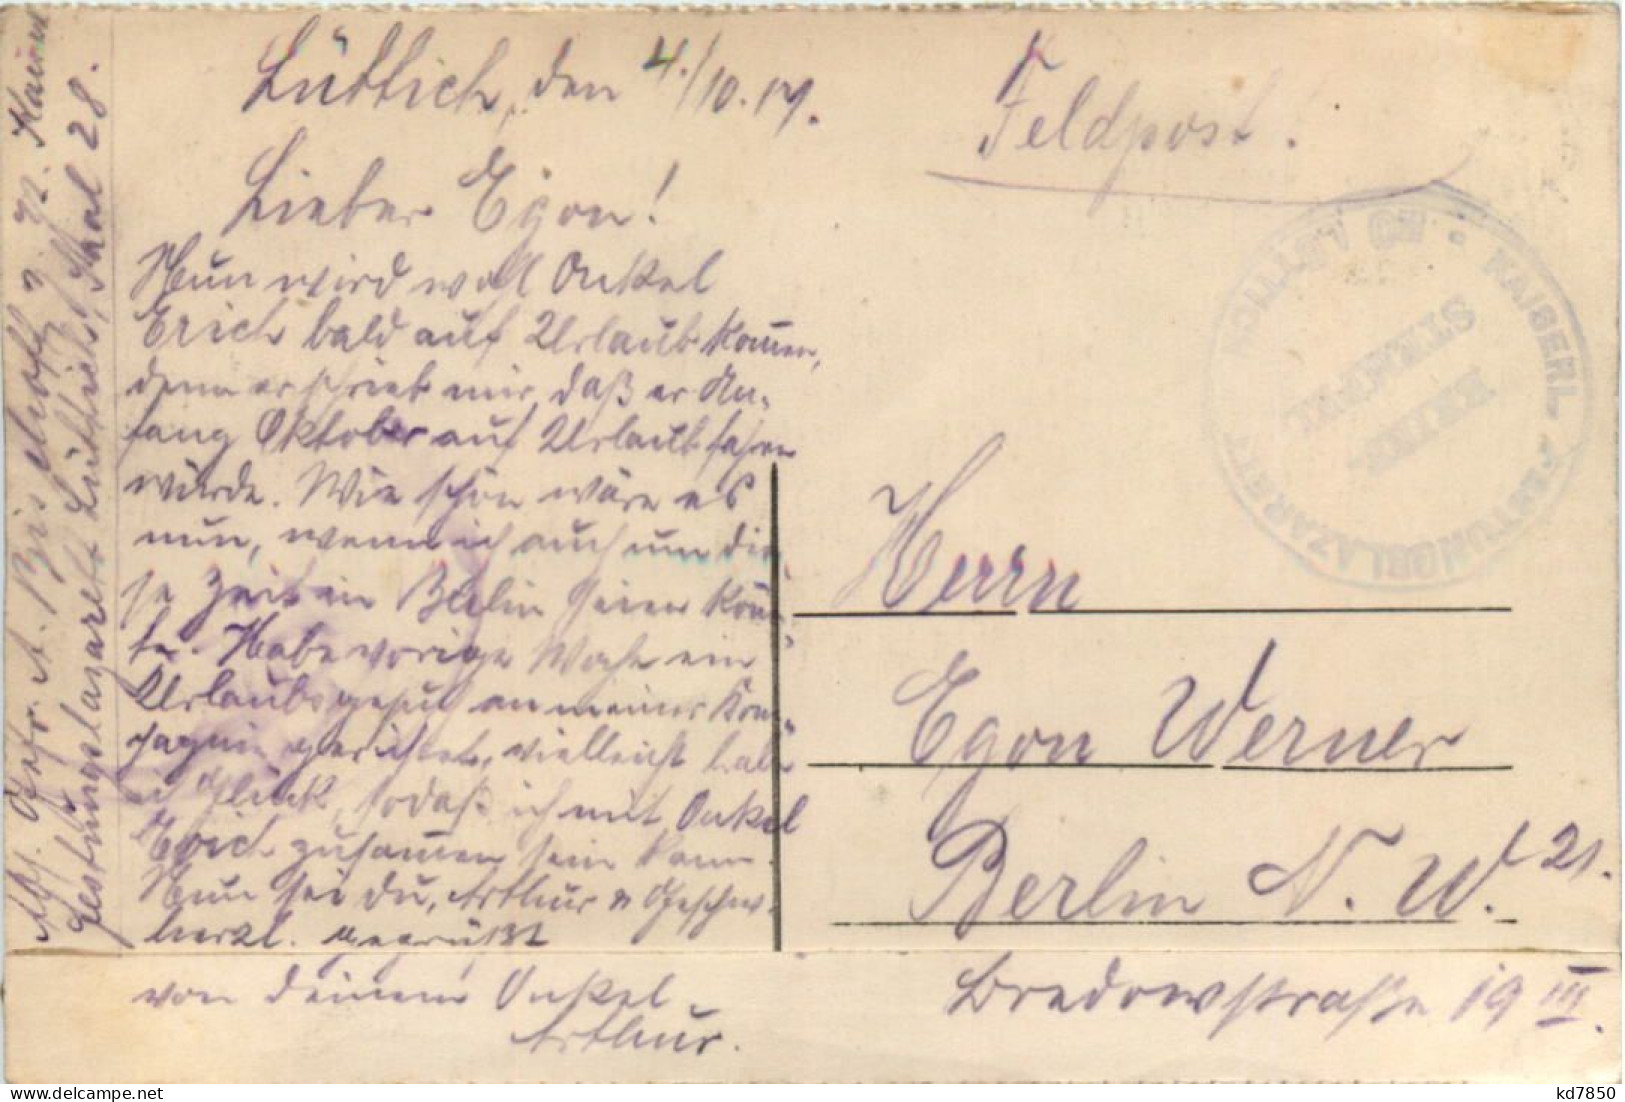 Lüttich, den 4./10.17.
Lieber Egon!
Nun wird wohl Onkel
Erich bald auf Urlaub kom̅en,
denn er schrieb mir, daß er An-
fang Oktober auf Urlaub fahren
würde. Wie schön wäre es
nun, wenn ich auch um die-
se Zeit in Berlin seien kön̅-
te. Habe vorige Woche ein
Urlaubsgesuch an meine Kom-
pagnie gerichtet, vielleicht habe
ich Glück, sodaß ich mit Onkel
Erich zusam̅en sein kann.
Nun sei du, Arthur u Geschw.
herzl. gegrüßt
von deinem Onkel
Arthur.
Abs. Gefr. A.
Festungslazarett Lüttich, Saal 28.
Feldpost.
KAISERL. FESTUNGSLAZARETT
LÜTTICH
BRIEF-
STEMPEL
Herrn
Egon Werner
Berlin N. W. 21.
Bredowstraße 19 III.
kd7850